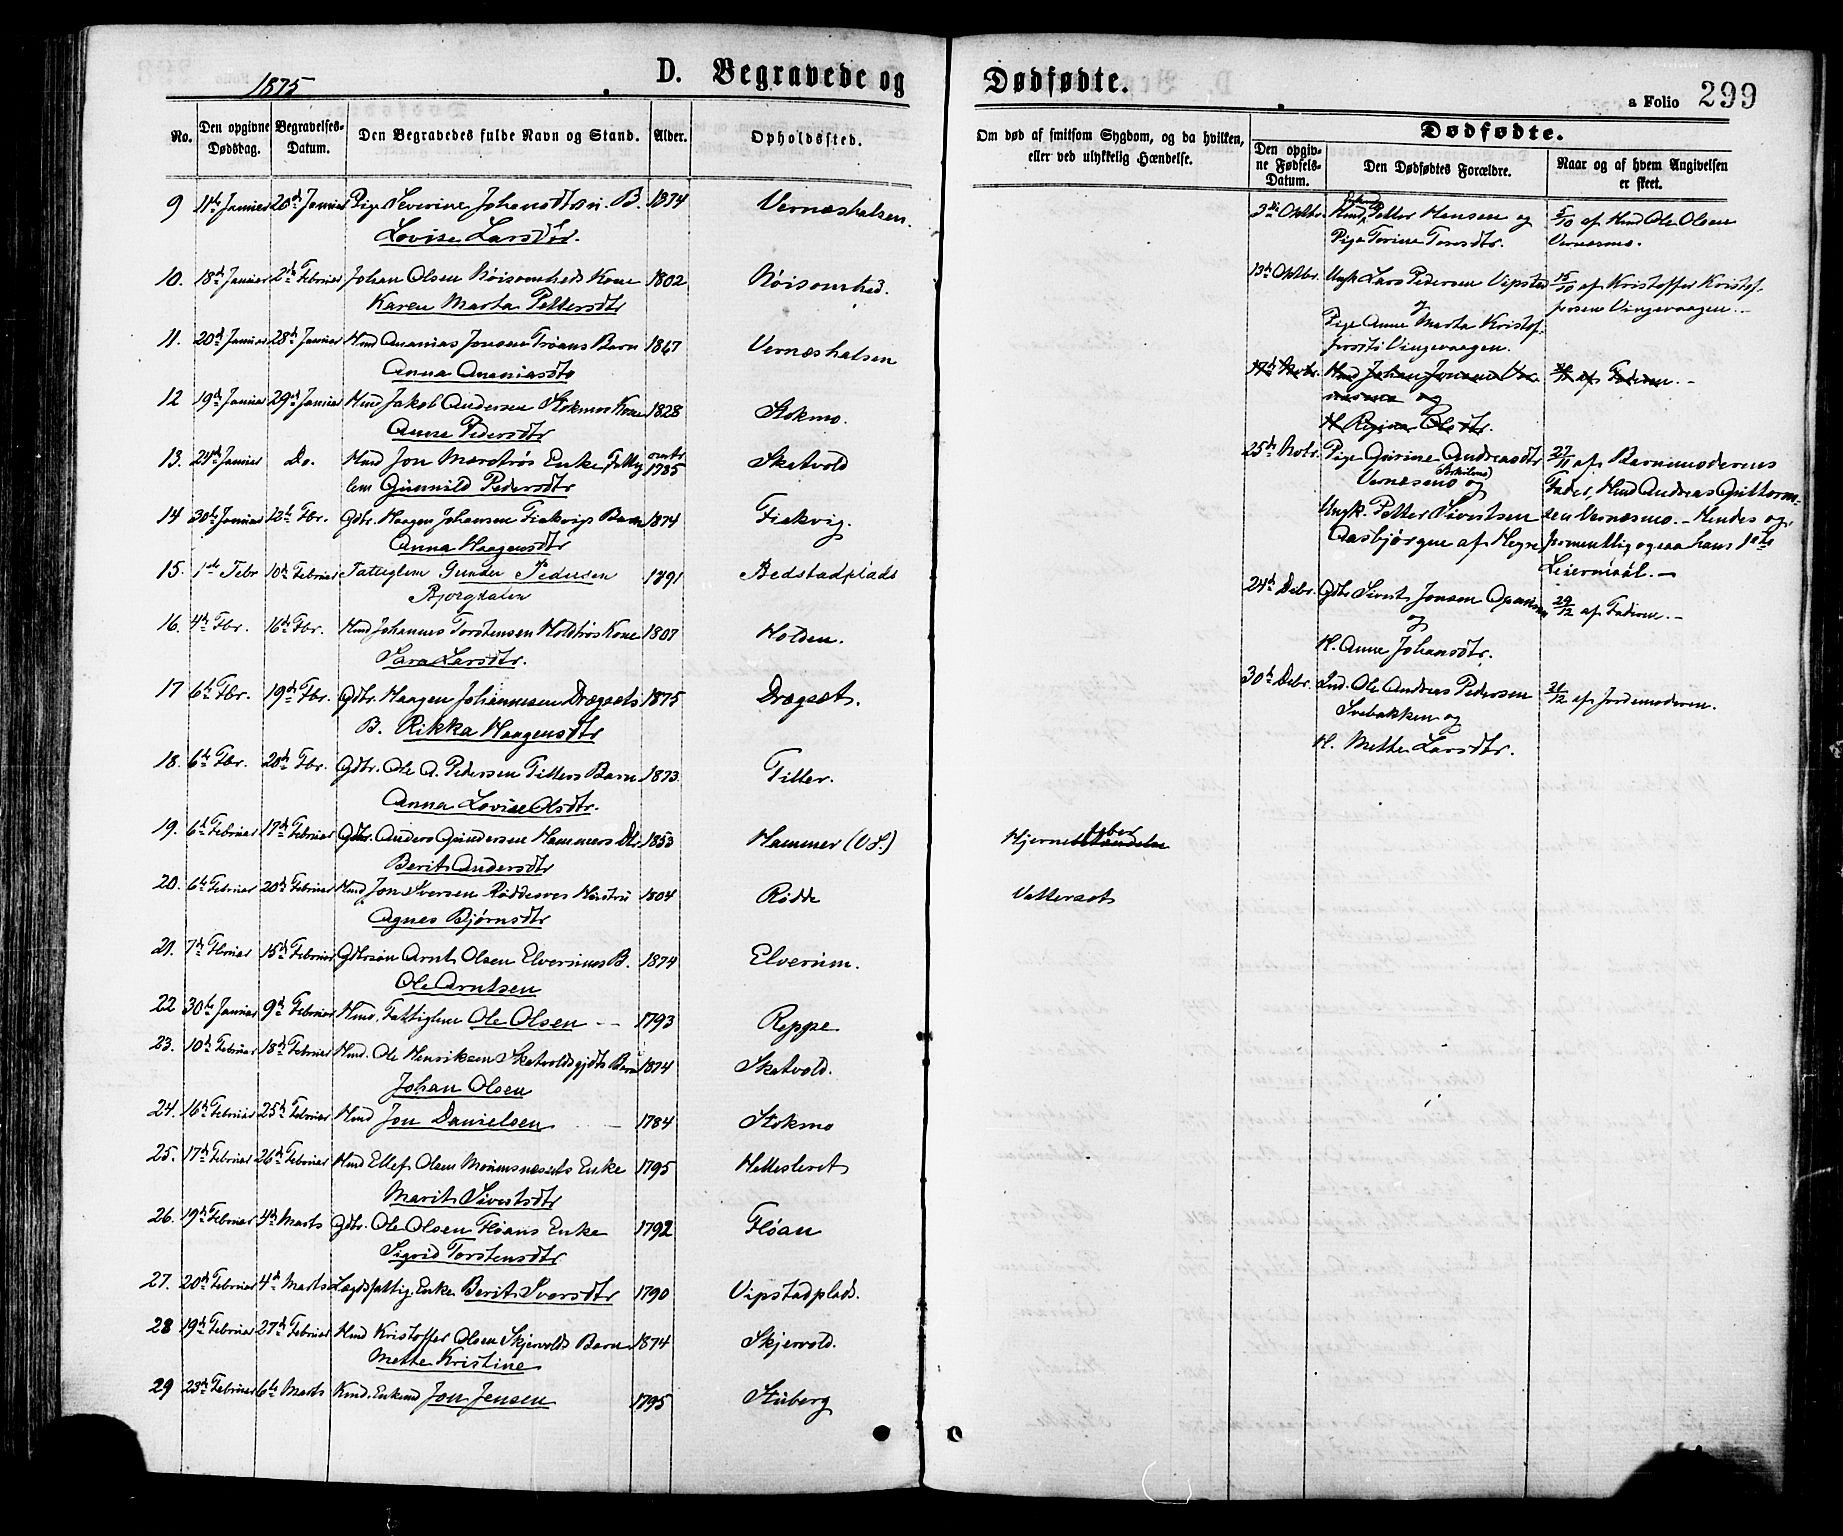 1875
D. Begravede og Dødfødte.
a Folio 299
No.
Den opgivne Dødsdag.
Begravelses-Datum.
Den Begravedes fulde Navn og Stand.
Alder.
Opholdssted.
Om død af smitsom Sygdom, og da hvilken,
eller ved ulykkelig Hændelse.
Dødfødte.
Den opgivne Fødsels-Datum.
Den Dødfødtes Forældre.
Naar og af hvem Angivelsen er skeet.
9 11te Januar 20de Januar Pige Severine Johansdtr. B. 1874 Vernæshalsen.
Lovise Larsdtr.
10. 18de Januar 2den Februar Johan Olsen Nøisomheds Kone 1802 Nøisomhed.
Karen Marta Pettersdtr
11. 20de Januar 28de Januar Hmd Ananias Jonsen Trøans Barn 1867 Vernæshalsen
Anna Ananiasdtr
12 19de Januar 29de Januar Hmd Jakob Andersen Stokmos Kone 1828 Stokmo.
Anne Pedersdtr
13. 24de Januar Do. Hmd Jon Enke Fattig omtr 1785 Skatvold
lem Gunnild Pedersdtr
14 30te Januar 12te Fbr. Gdbr. Haagen Johansen Fiskvigs Barn 1874 Fiskvig.
Anna Haagensdtr
15. 1ste Febr 10de Februar Fattiglem Gunder Pedersen 1791 Bedstadplads
Bjorgdalen
16. 4de Fbr. 16de Fbr. Hmd Johannes Torstensen Kone 1807 Holden.
Sara Larsdtr.
17 6te Fbr. 19de Fbr. Gdbr. Haagen Johannesen Drægsets 1875 Drægset.
B. Rikka Haagensdtr
18. 6te Fbr. 20de Fbr. Gdbr. Ole A. Pedersen Tillers Barn 1873. Tiller.
Anna Lovise Olsdtr.
19. 6te Februar 17de Februar Gdbr. Anders Gundersen Hammers Dtr 1853 Hammer (V.S.) Hjernefeber
Berit Andersdtr
20. 6te Februar 20de Februar Hmd Jon Iversen Røddesves Hustru 1804 Rødde Vattersot
Agnes Bjørnsdtr
21. 7de Februar 15de Februar Gdbrsøn Arnt Olsen Elverums B. 1874 Elverum.
Ole Arntsen
22 30te Januar 9de Februar Hmd. Fattiglem Ole Olsen - - 1793 Reppe
23. 10de Februar 18de Februar Hmd. Ole Henriksen Barn 1874 Skatvold.
Johan Olsen
24. 16de Februar 25de Februar Hmd Jon Danielsen 1784 Stokmo
25. 17de Februar 26de Februar Hmd Ellef Olsen Enke 1795
Marit Sivertsdtr
26. 19de Februar 4de Marts Gdbr. Ole Olsen Fløans Enke 1792 Fløan
Sigrid Torstensdtr
27. 20de Februar 4de Marts Lægdsfattig Enke Berit Iversdtr 1790 Vipstadplads.
28 19de Februar 27de Februar Hmd Kristoffer Olsen Skjervolds Barn 1874 Skjervold.
Mette Kristine
29 23de Februar 6te Marts Enkmd Jon Jensen 1795 Stuberg
3die Oktbr. Hmd. Petter Hansen og 5/10 af Hmd Ole Olsen
Pige Torine Toresdtr. Vernæsmo.
13de Oktbr. Ungk Lars Pedersen Vipstad 15/10 af Kristoffer Kristof-
og fersen Vingevaagen. -
Pige Anne Marta Kristof-
fersdtr Vingevaagen.
17de Novbr. Hmd Johan Jonsen af Faderen. -
og
H. Regina Olsdtr.
25de Novbr. Pige Gurine Andreasdtr 27/11 af Barnemoderens
Vernæsmo og Fader, Hmd Andreas Guttorm-
Ungk. Petter Sivertsen sen Vernæsmo. - Hendes og
Aasbjørgen af Hegre formentlig ogsaa hans 1ste
Leiermaal. -
24de Debr. Gdbr Sivert Jonsen 29/12 af Faderen. -
og
H. Anne Johansdtr.
30te Debr. Ind. Ole Andreas Pedersen 31/12 af Jordemoderen.
Svebakken og
H. Mette Larsdtr.